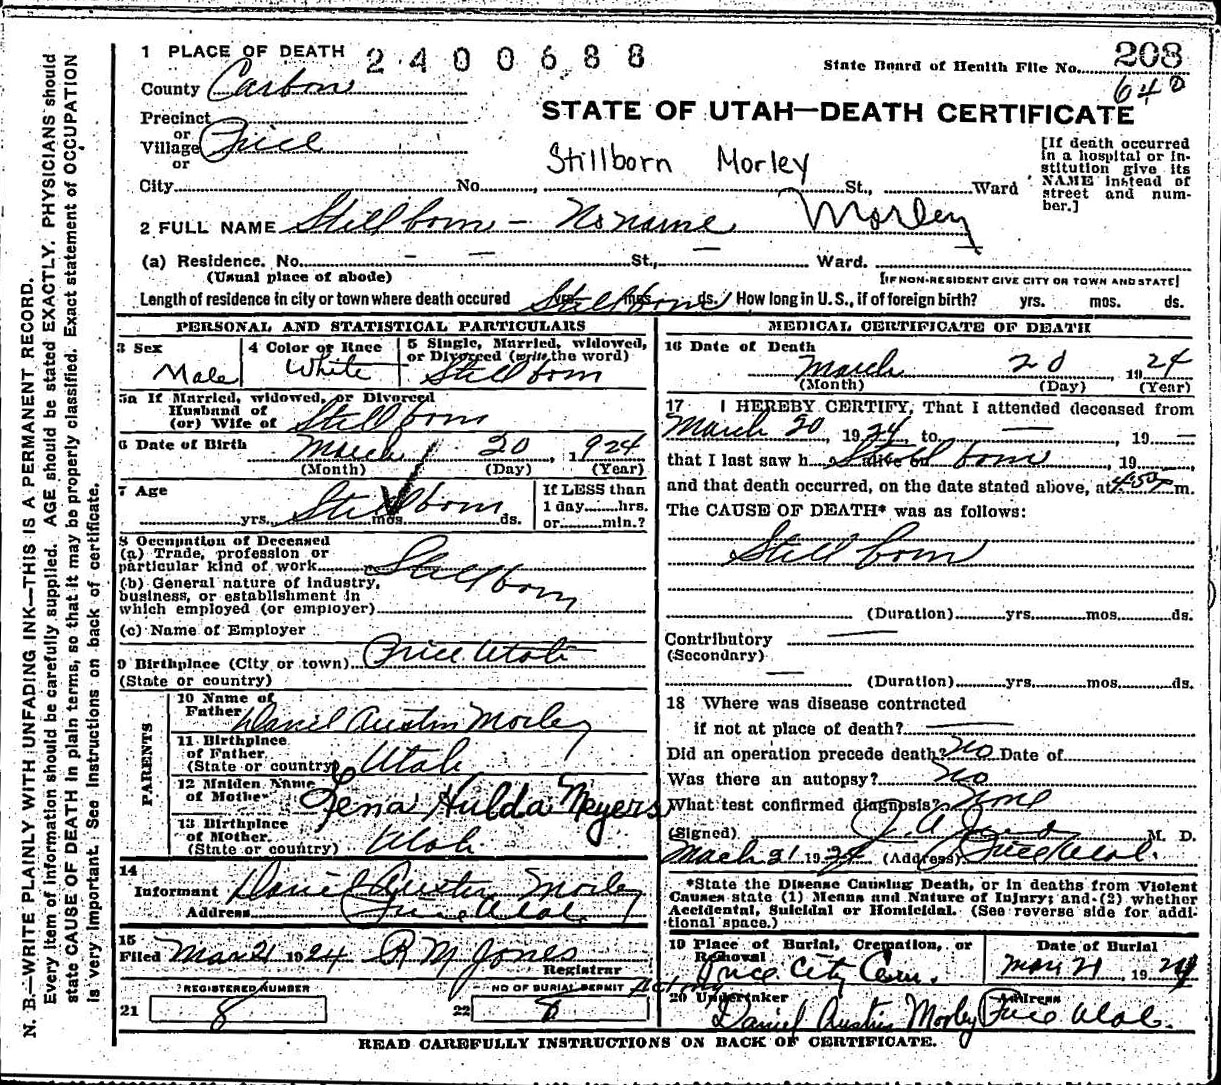 1 PLACE OF DEATH 2400688
State Board of Health File No. 208
640
County Carbon
STATE OF UTAH—DEATH CERTIFICATE
Precinct
or
Village Price
or
Stillborn Morley
[If death occurred in a hospital or institution give its NAME instead of street and number.]
City No. , St., Ward
2 FULL NAME Stillborn - No name Morley
(a) Residence. No. — — St., — Ward.
(Usual place of abode) [IF NON-RESIDENT GIVE CITY OR TOWN AND STATE]
Length of residence in city or town where death occured yrs. mos. ds. Stillborn How long in U. S., if of foreign birth? yrs. mos. ds.
PERSONAL AND STATISTICAL PARTICULARS
3 Sex Male
4 Color or Race White
5 Single, Married, widowed, or Divorced (write the word) Stillborn
5a If Married, widowed, or Divorced
Husband of
(or) Wife of Stillborn
6 Date of Birth March 20, 1924
(Month) (Day) (Year)
7 Age Stillborn
yrs. mos. ds.
If LESS than
1 day hrs.
or min.?
8 Occupation of Deceased
(a) Trade, profession or
particular kind of work Stillborn
(b) General nature of Industry,
business, or establishment in
which employed (or employer)
(c) Name of Employer
9 Birthplace (City or town) Price Utah
(State or country)
PARENTS
10 Name of
Father Daniel Austin Morley
11 Birthplace
of Father
(State or country) Utah
12 Maiden Name
of Mother Lena Hulda Meyers
13 Birthplace
of Mother
(State or country) Utah.
14
Informant Daniel Austin Morley
Address Price Utah.
15
Filed Mar 21 1924 R M Jones
Registrar
REGISTERED NUMBER
21 8
NO OF BURIAL PERMIT
22 8
MEDICAL CERTIFICATE OF DEATH
16 Date of Death
March 20, 1924
(Month) (Day) (Year)
17 I HEREBY CERTIFY, That I attended deceased from
March 20, 1924 to — , 19 —
that I last saw h alive on Stillborn, 19
and that death occurred, on the date stated above, at m.
The CAUSE OF DEATH* was as follows:
Stillborn
(Duration) yrs. mos. ds.
Contributory —
(Secondary)
— (Duration) yrs. mos. ds.
18 Where was disease contracted
if not at place of death? —
Did an operation precede death? No Date of
Was there an autopsy? No
What test confirmed diagnosis? None
(Signed) M. D.
March 21 1924 (Address) Price Utah.
*State the Disease Causing Death, or in deaths from Violent
Causes state (1) Means and Nature of Injury; and (2) whether
Accidental, Suicidal or Homicidal. (See reverse side for addi-
tional space.)
19 Place of Burial, Cremation, or
Removal Price City Cem.
Date of Burial
Mar 21 1924
20 Undertaker Daniel Austin Morley
Address Price Utah.
READ CAREFULLY INSTRUCTIONS ON BACK OF CERTIFICATE.
N. B.—WRITE PLAINLY WITH UNFADING INK—THIS IS A PERMANENT RECORD.
Every item of information should be carefully supplied. AGE should be stated EXACTLY. PHYSICIANS should
state CAUSE OF DEATH in plain terms, so that it may be properly classified. Exact statement of OCCUPATION
is very important. See Instructions on back of certificate.